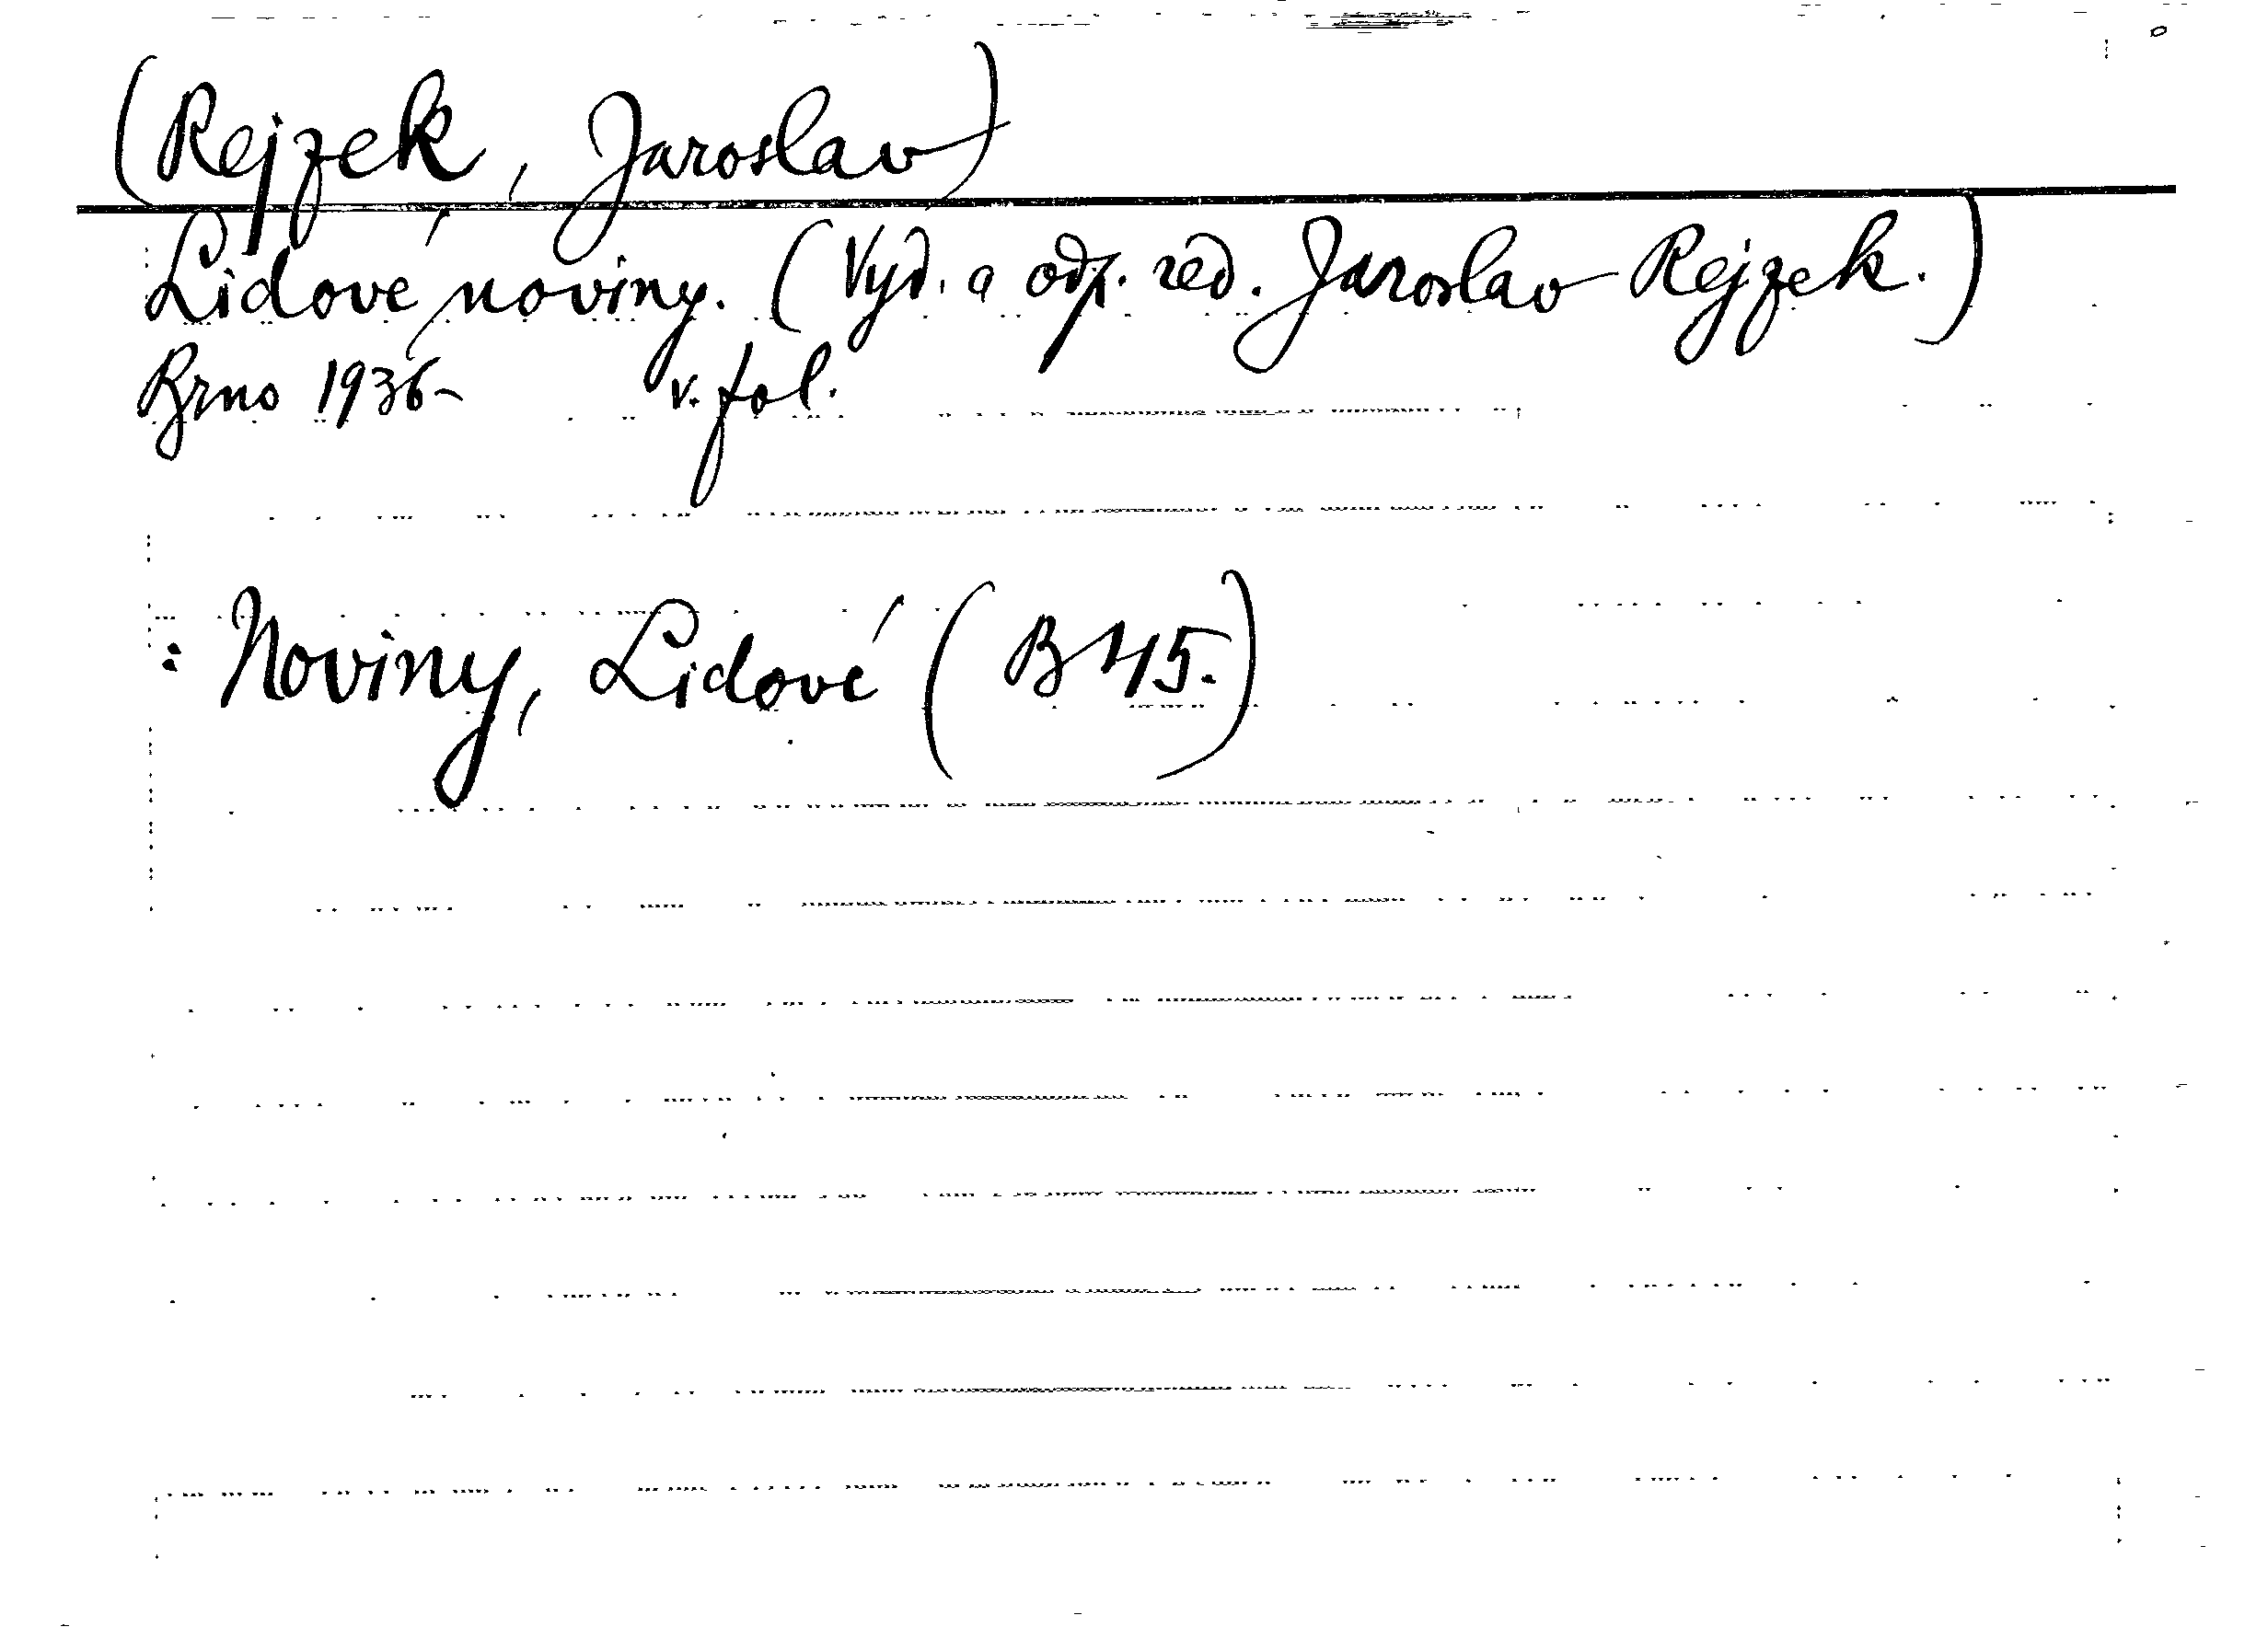 (Rejzek, Jaroslav)
Lidové noviny. (Vyd. a odp. red. Jaroslav Rejzek.)
Brno 1936- v. fol.
: Noviny, Lidové (B 45.)